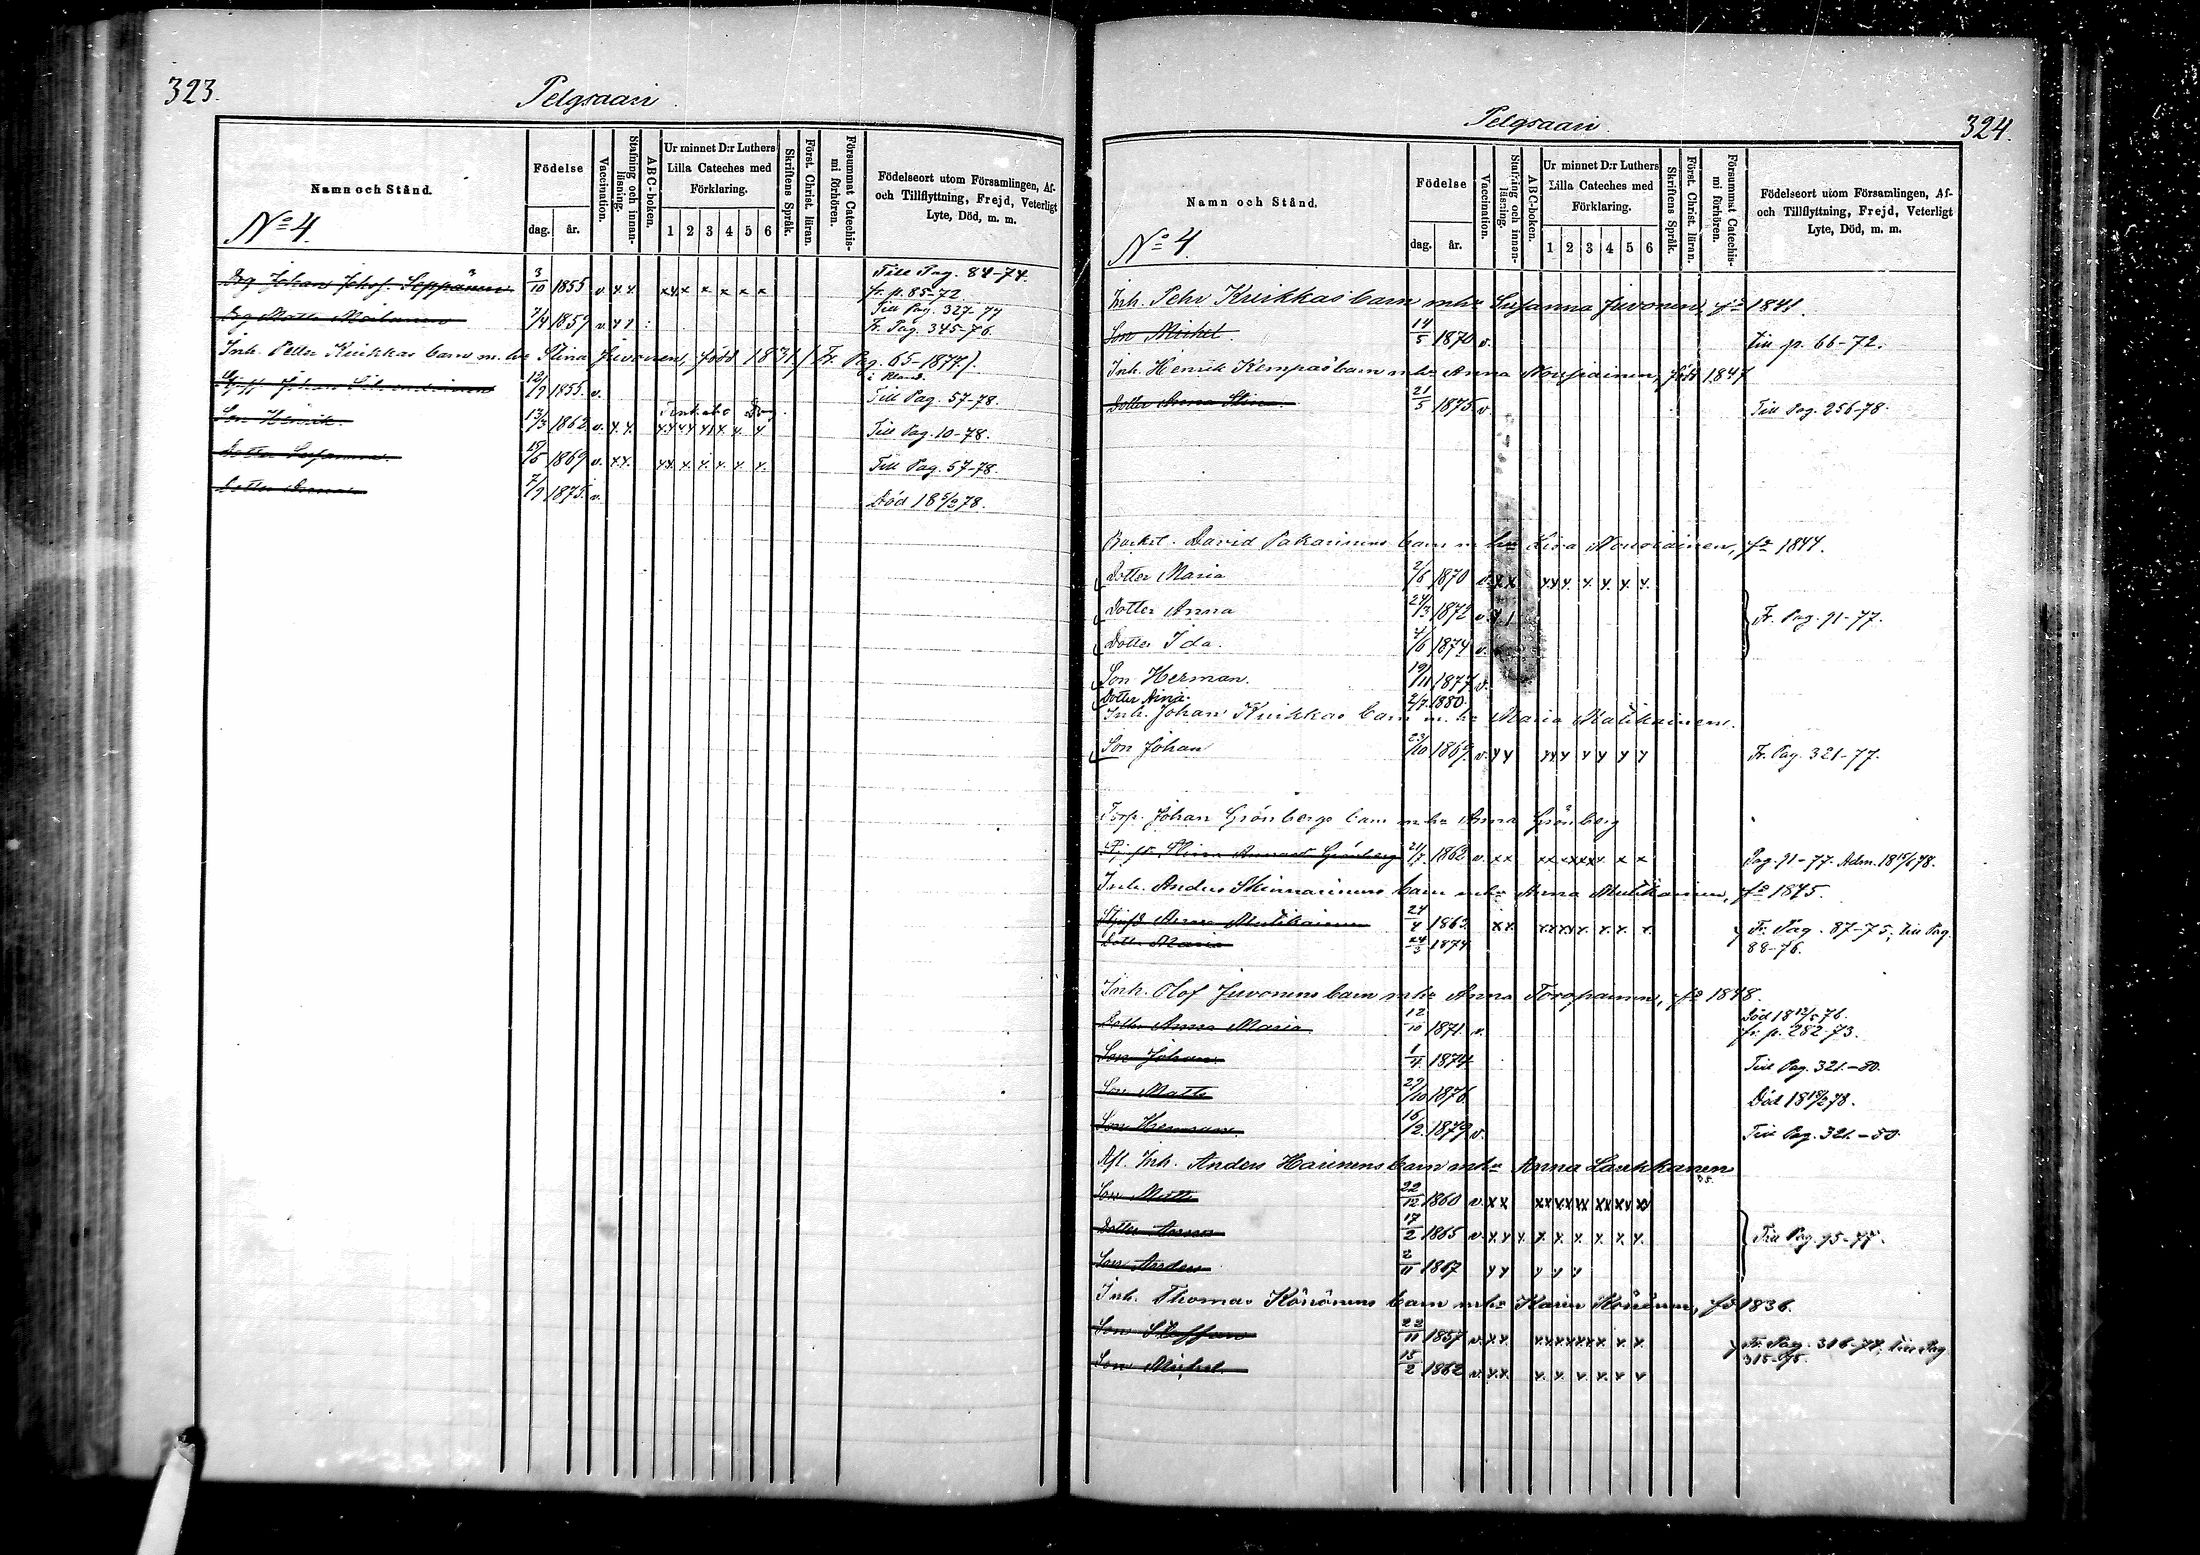 323.
Pelgsaari
Namn och Stånd.
Födelse
dag. år.
Vaccination.
Stafning och innanläsning.
ABC-boken.
Ur minnet D:r Luthers Lilla Cateches med Förklaring.
1 2 3 4 5 6
Skriftens Språk.
Först. Christ. läran.
Försummat Catechismi förhören.
Födelseort utom Församlingen, Af- och Tillflyttning, Frejd, Veterligt Lyte, Död, m. m.
No 4.
Till Pag. 84-74.
Drg Johan Johsf. Seppänen 3/10 1855 v. x x x x x x x x x fr. p. 85-72
Till Pag. 327-77
Drg Matts 7/4 1859 v. Fr. Pag. 345-76.
Inh. Petter Kuikkas barn m. hu Stina Juvonen, född 1831 (Fr. Pag. 65-1877).
Johan 12/9 1855. v. Till Pag. 57-78.
Son Henrik 13/3 1862. v. x. x. Till Pag. 10-78.
Dotter Susanna 1869 v. x x. Till Pag. 57-78.
Dotter Anna 7/9 1875. v. Död 18 5/2 78.
Pelgsaari
324.
Namn och Stånd.
Födelse
dag. år.
Vaccination.
Stafning och innanläsning.
ABC-boken.
Ur minnet D:r Luthers Lilla Cateches med Förklaring.
1 2 3 4 5 6
Skriftens Språk.
Först. Christ. läran.
Försummat Catechismi förhören.
Födelseort utom Församlingen, Af- och Tillflyttning, Frejd, Veterligt Lyte, Död, m. m.
No 4.
Inh. Pehr Kuikkas barn m hu Susanna Juvonen, fd 1841.
Son Mickel. 14/5 1870 v. Till p. 66-72.
Inh. Henrik Kempas barn m hu Anna Nousiainen, född 1847
Dotter Anna Stina 21/5 1875 v. Till Pag. 256-78.
David Pakarinens barn m hu Lisa Nousiainen, fd 1844.
Dotter Maria 2/6 1870 v. x x x x x x x x x
Dotter Anna 24/3 1872 v. Fr. Pag. 91-77.
Dotter Ida. 4/6 1874 v.
Son Herman. 19/11 1877 v.
Dotter Aina. 2/7 1880
Inh. Johan Kuikkas barn m. hu Maria Matikainen.
Son Johan 23/10 1869. v. x x x x x x x x x Fr. Pag. 321-77.
Torp. Johan Grönbergs barn m hu Anna Grönberg
1862 v. x x Pag. 91-77. Adm. 18 78.
Inh. Anders Skinnarinens barn m hu Anna Matikainen, fd 1845.
Styfd Anna Matikainen 24/4 1863. x x. Fr. Pag. 87-75, till Pag.
Dotter Maria 24/3 1874 88-76.
Inh. Olof Juvonens barn m hu Anna Toropainen, fd 1848.
Död 18 76.
Dotter Anna Maria 12/10 1871. v. fr. p. 282-73.
Son Johan 1/4 1874 Till Pag. 321.-80.
Son Matts 29/10 1876 Död 18 78.
Son Herman. 16/2 1879 v. Till Pag. 321.-80.
Afl. Inh. Anders Harinens barn m hu Anna Laukkanen
Son Matts 22/12 1860 v. x x
Dotter Anna 17/2 1865 v. x x x x x x x x x Till Pag. 95-77.
Son Anders 2/11 1867 x x x x x
Inh. Thomas Könönens barn m hu Karin Könönen, fd 1836.
Son Staffan 22/11 1857 v. x x Fr. Pag. 316-74, till Pag
Son Mickel. 15/2 1862 v. x x. x. x. x. x. x. x 315-75.